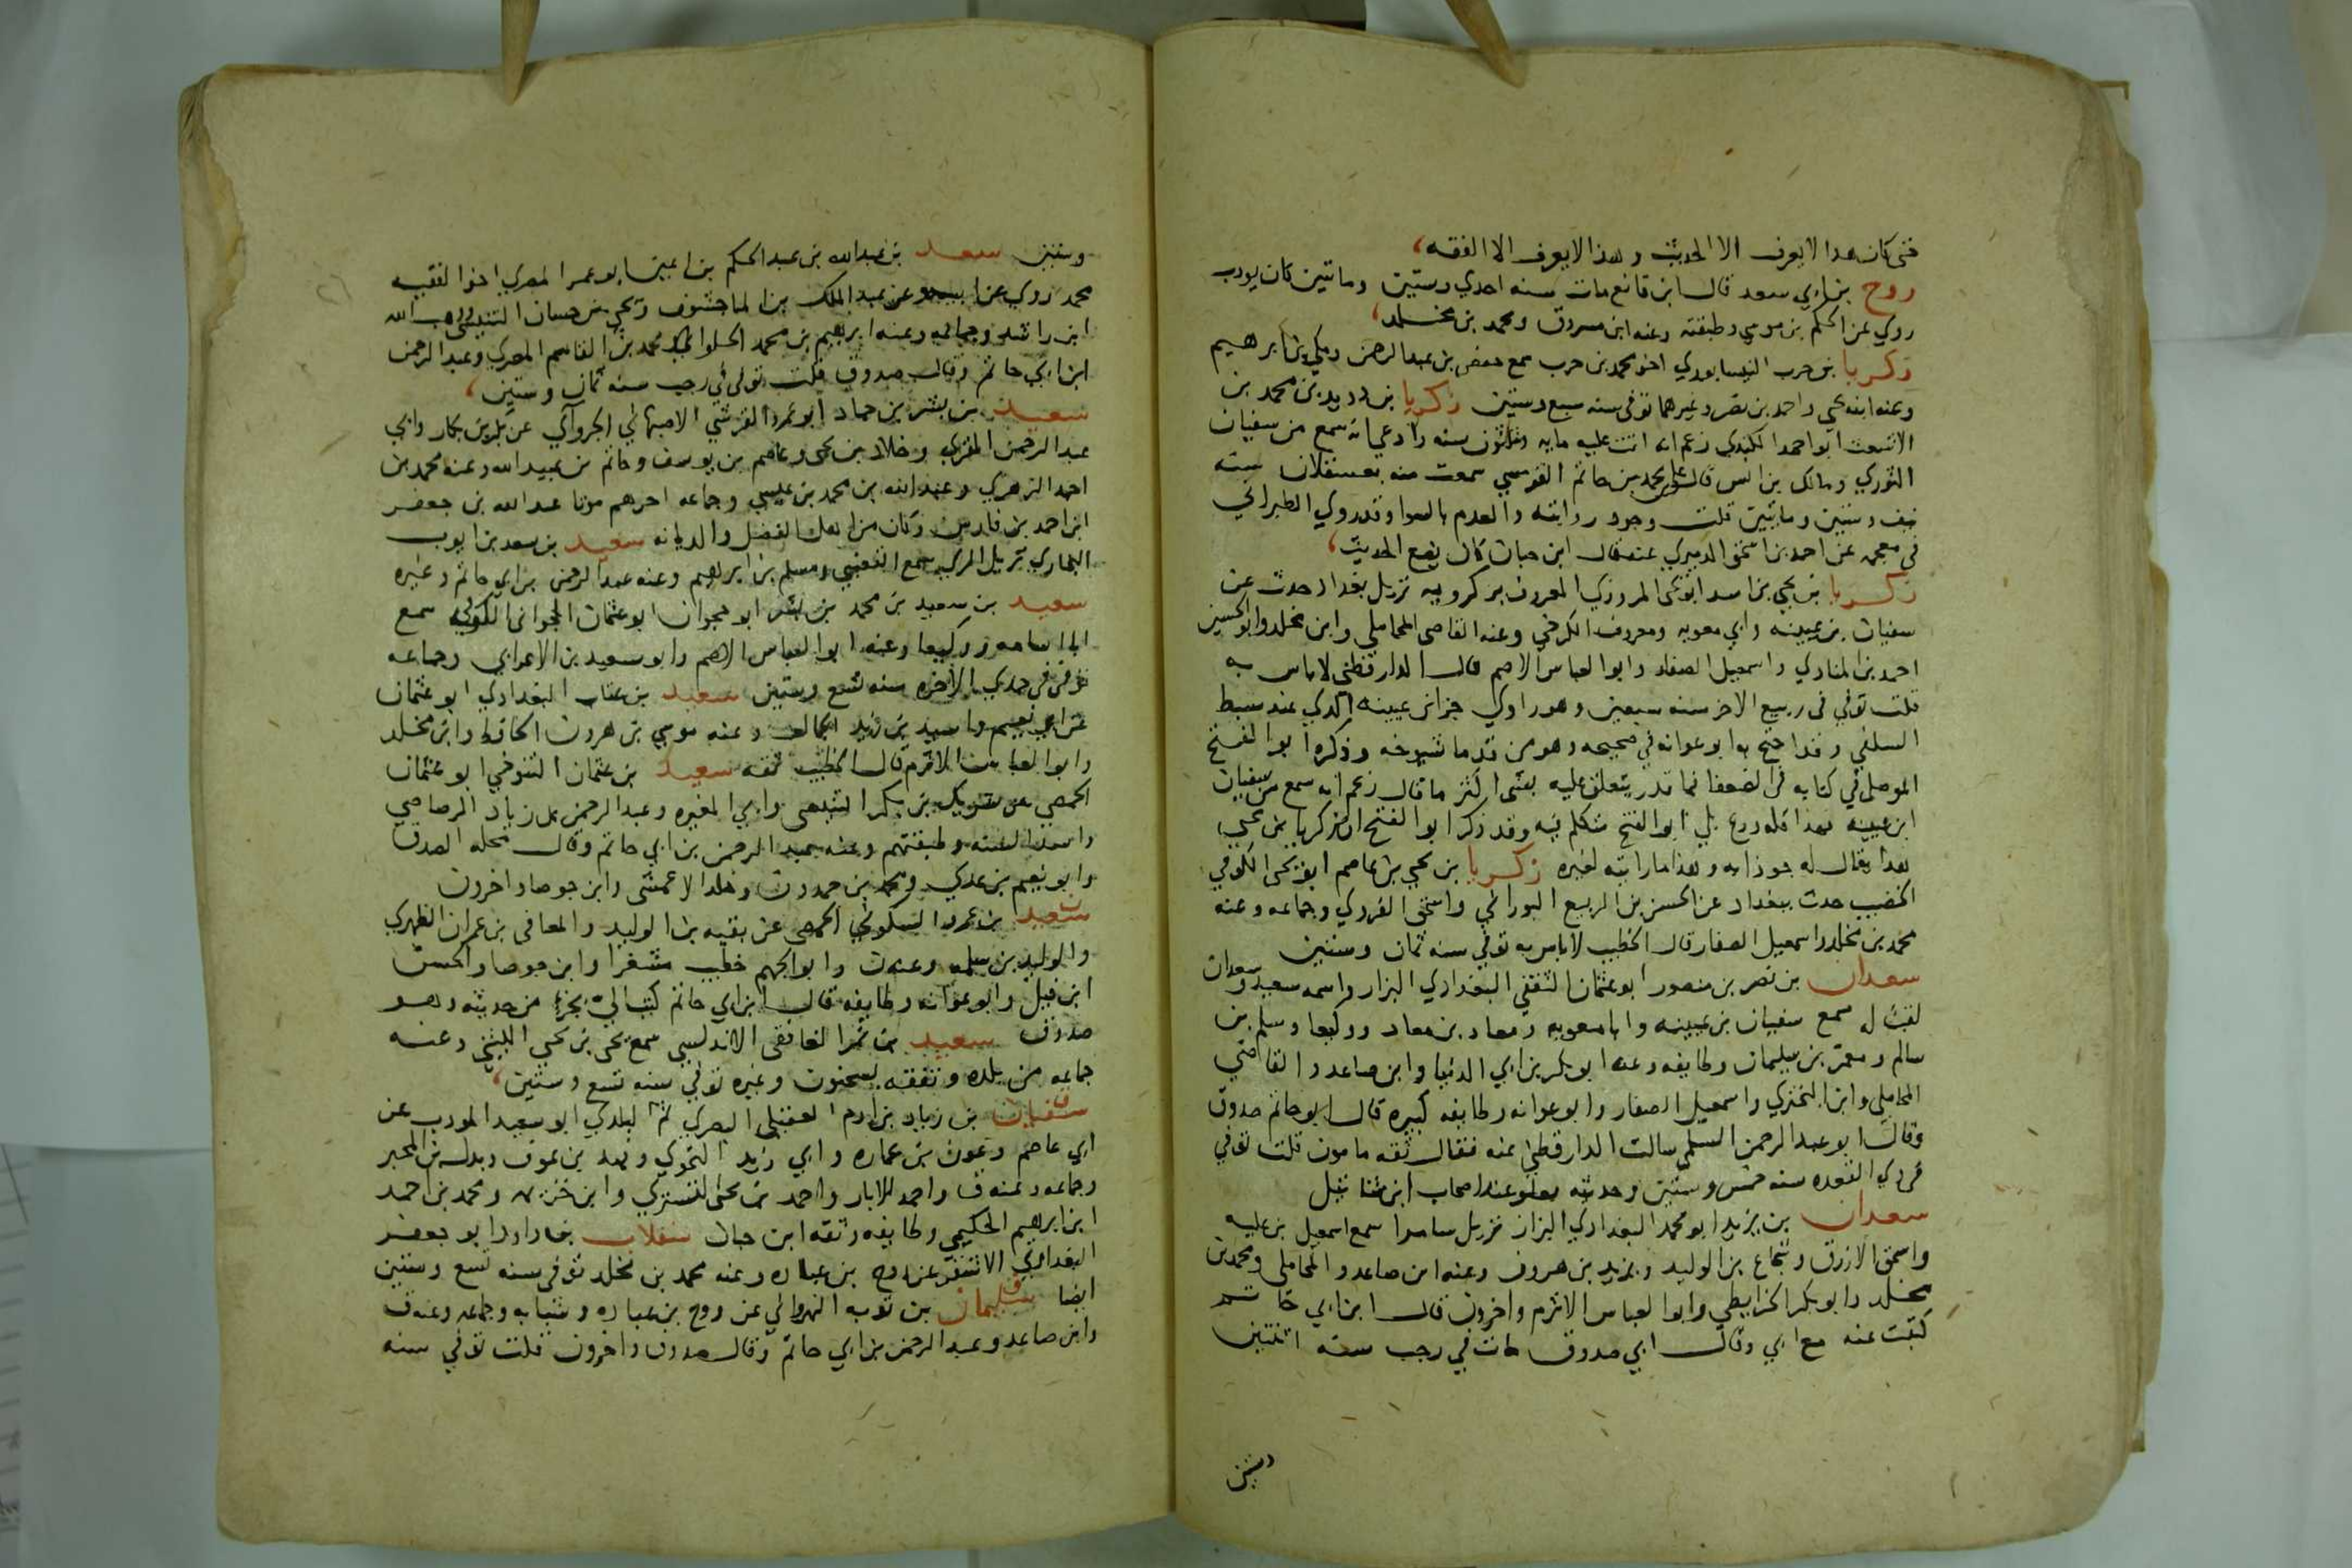 فتى كان هذا لا يعرف الا الحديث وهذا لا يعرف الا الفقه
روح بن ابي سعد قال ابن قانع مات سنه احدي وستين وماتين كان يودب
روي عن الحكم بن موسي وطبقته وعنه ابن مسروق ومحمد بن مخلد
زكريا بن حرب النيسابوري اخو محمد بن حرب سمع حفص بن عبد الرحمن ومكي بن ابرهيم
وعنه ابنه يحي واحمد بن نصر وغيرهما توفي سنه سبع وستين زكريا بن دويد بن محمد بن
الاشعث ابو احمد الكندي زعم انه اتت عليه مايه وثلثون سنه وادعي انه سمع من سفيان
الثوري ومالك بن انس قال علي بن محمد بن حاتم القومسي سمعت منه بعسقلان سنه
نيف وستين وماتين قلت وجود روايته والعدم بالسوا وقد روي الطبراني
في معجمه عن احمد بن اسحق الدميري عنه قال ابن حبان كان يضع الحديث
زكريا بن يحي بن اسد ابو يحي المروزي المعروف بزكرويه نزيل بغداد حدث عن
سفيان بن عيينه وابي معويه ومعروف الكرخي وعنه القاضي المحاملي وابن مخلد وابو الحسين
احمد بن المنادي واسمعيل الصفار وابو العباس الاصم قال الدارقطني لا باس به
قلت توفي في ربيع الاخر سنه سبعين وهو راوي جزابن عيينه الذي عند سبط
السلفي وقد احتج به ابو عوانه في صحيحه وهو من قدما شيوخه وذكره ابو الفتح
الموصلي في كتابه في الضعفا فما قدر يتعلق عليه بشي اكثر ما قال زعم انه سمع من سفيان
ابن عيينه بل ابو الفتح متكلم فيه وقد ذكر ابو الفتح ان زكريا بن يحيي
هذا يقال له جوذابه وهذا ما رايته لغيره زكريا بن يحي بن عاصم ابو يحي الكوفي
الخضيب حدث ببغداد عن الحسن بن الربيع البوراني واسحق الفروي وجماعه وعنه
محمد بن مخلد واسمعيل الصفار قال الخطيب لا باس به توفي سنه ثمان وستين
سعدان بن نصر بن منصور ابو عثمان الثقفي البغدادي البزار واسمه سعيد وسعدان
لقب له سمع سفيان بن عيينه وابا معويه ومعاد بن معاد ووكيعا وسلم بن
سالم ومعمر بن سليمان وطايفه وعنه ابو بكر بن ابي الدنيا وابن صاعد والقاضي
المحاملي وابن البختري واسمعيل الصفار وابو عوانه وطايفه كبيره قال ابو حاتم صدوق
وقال ابو عبد الرحمن السلمي سالت الدارقطني عنه فقال ثقه مامون قلت توفي
في ذي القعده سنه خمس وستين وحديثه يعلو عند اصحاب ابن شاتيل
سعدان بن يزيد ابو محمد البغدادي البزاز نزيل سامرا سمع اسمعيل بن عليه
واسحق الازرق وشجاع بن الوليد ويزيد بن هرون وعنه ابن صاعد والمحاملي ومحمد بن
مخلد وابو بكر الخرايطي وابو العباس الاثرم واخرون قال ابن ابي حاتم
كتبت عنه مع ابي وقال ابي صدوق مات في رجب سنه اثنتين
وستين
وستين سعد بن عبد الله بن عبد الحكم بن اعين ابو عمر المصري اخو الفقيه
محمد روي عن ابيه وعن عبد الملك بن الماجشون ويحي بن حسان التنيسي ووهب الله
ابن راشد وجماعه وعنه ابرهيم بن محمد الحلواني ومحمد بن القاسم المصري وعبد الرحمن
ابن ابي حاتم وقال صدوق قلت توفي في رجب سنه ثمان وستين
سعيد بن بشر بن حماد ابو عمرو القرشي الاصبهاني الجرواآني عن بكر بن بكار وابي
عبد الرحمن المقري وخلاد بن يحي وعاصم بن يوسف وحاتم بن عبيد الله وعنه محمد بن
احمد الزهري وعبد الله بن محمد بن عيسي وجماعه اخرهم موتا عبد الله بن جعفر
ابن احمد بن فارس وكان من اهل الفضل والديانه سعيد بن سعد بن ايوب
البخاري نزيل الري سمع القعنبي ومسلم بن ابرهيم وعنه عبد الرحمن بن ابي حاتم وغيره
سعيد بن سعيد بن محمد بن بشر ابو حجوان ابو عثمان الحجواني الكوفي سمع
ابا اسامه ووكيعا وعنه ابو العباس الاصم وابو سعيد بن الاعرابي وجماعه
توفي في جمدي الاخره سنه تسع وستين سعيد بن عتاب البغدادي ابو عثمان
عن ابي نعيم واسيد بن زيد الجمال وعنه موسي بن هرون الحافظ وابن مخلد
وابو العباس الاثرم قال الخطيب ثقه سعيد بن عثمان التنوخي ابو عثمان
الحمصي عن بشر بن بكر التنيسي وابي المغيره وعبد الرحمن بن زياد الرصاصي
واسد السنه وطبقتهم وعنه عبد الرحمن بن ابي حاتم وقال محله الصدق
وابو نعيم بن عدي ومحمد بن حمدون وخلد الاعمشي وابن جوصا واخرون
سعيد بن عمرو السكوني الحمصي عن بقيه بن الوليد والمعافي بن عمران الظهري
والوليد بن سلمه وعنه ن وابو الجهم خطيب مشغرا وابن جوصا والحسن
ابن فيل وابو عوانه وطايفه قال ابن ابي حاتم كتب الي بجزء من حديثه وهو
صدوق سعيد بن نمر الغافقي الاندلسي سمع يحي بن يحي الليثي وعنه
جماعه من بلده وتفقه بسحنون وغيره توفي سنه تسع وستين
سفيان بن زياد بن ادم العقيلي البصري ثم البلدي ابو سعيد المودب عن
ابي عاصم وعون بن عماره وابي زيد النحوي وفهد بن عوف وبدل بن المحبر
وجماعه وعنه ق واحمد الابار واحمد بن يحي التستري وابن خزيمه ومحمد بن احمد
ابن ابرهيم الحكيمي وطايفه وثقه ابن حبان سقلاب بن داود ابو جعفر
البغدادي الاشقر عن روح بن عباده وعنه محمد بن مخلد توفي سنه تسع وستين
ايضا سليمان بن توبه النهرواني عن روح بن عباده وشبابه وجماعه وعنه ق
وابن صاعد وعبد الرحمن بن ابي حاتم وقال صدوق واخرون قلت توفي سنه